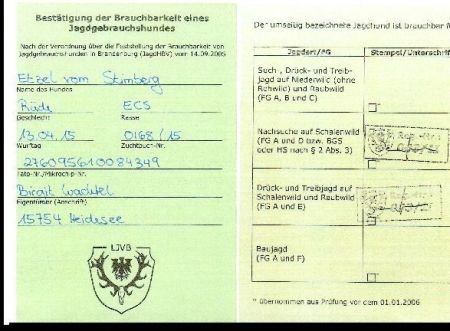 Bestätigung der Brauchbarkeit eines
Jagdgebrauchshundes
Nach der Verordnung über die Feststellung der Brauchbarkeit von
Jagdgebrauchshunden in Brandenburg (JagdHBV) vom 14.09.2005
Etzel vom Stimberg
Name des Hundes
Rüde ECS
Geschlecht Rasse
13.04.15 0168/15
Wurftag Zuchtbuch-Nr.
276095610084349
Täto-Nr./Mikrochip-Nr.
Birgit Wachtel
Eigentümer (Anschrift)
15754 Heidesee
LJVB
Der umseitig bezeichnete Jagdhund ist brauchbar f
Jagdart/FG Stempel/Unterschrift
Such-, Drück- und Treib-
jagd auf Niederwild (ohne
Rehwild) und Raubwild
(FG A, B und C)
Nachsuche auf Schalenwild
(FG A und D bzw. BGS
oder HS nach § 2 Abs. 3)
Drück- und Treibjagd auf
Schalenwild und Raubwild
(FG A und E)
Baujagd
(FG A und F)
* übernommen aus Prüfung vor dem 01.01.2006